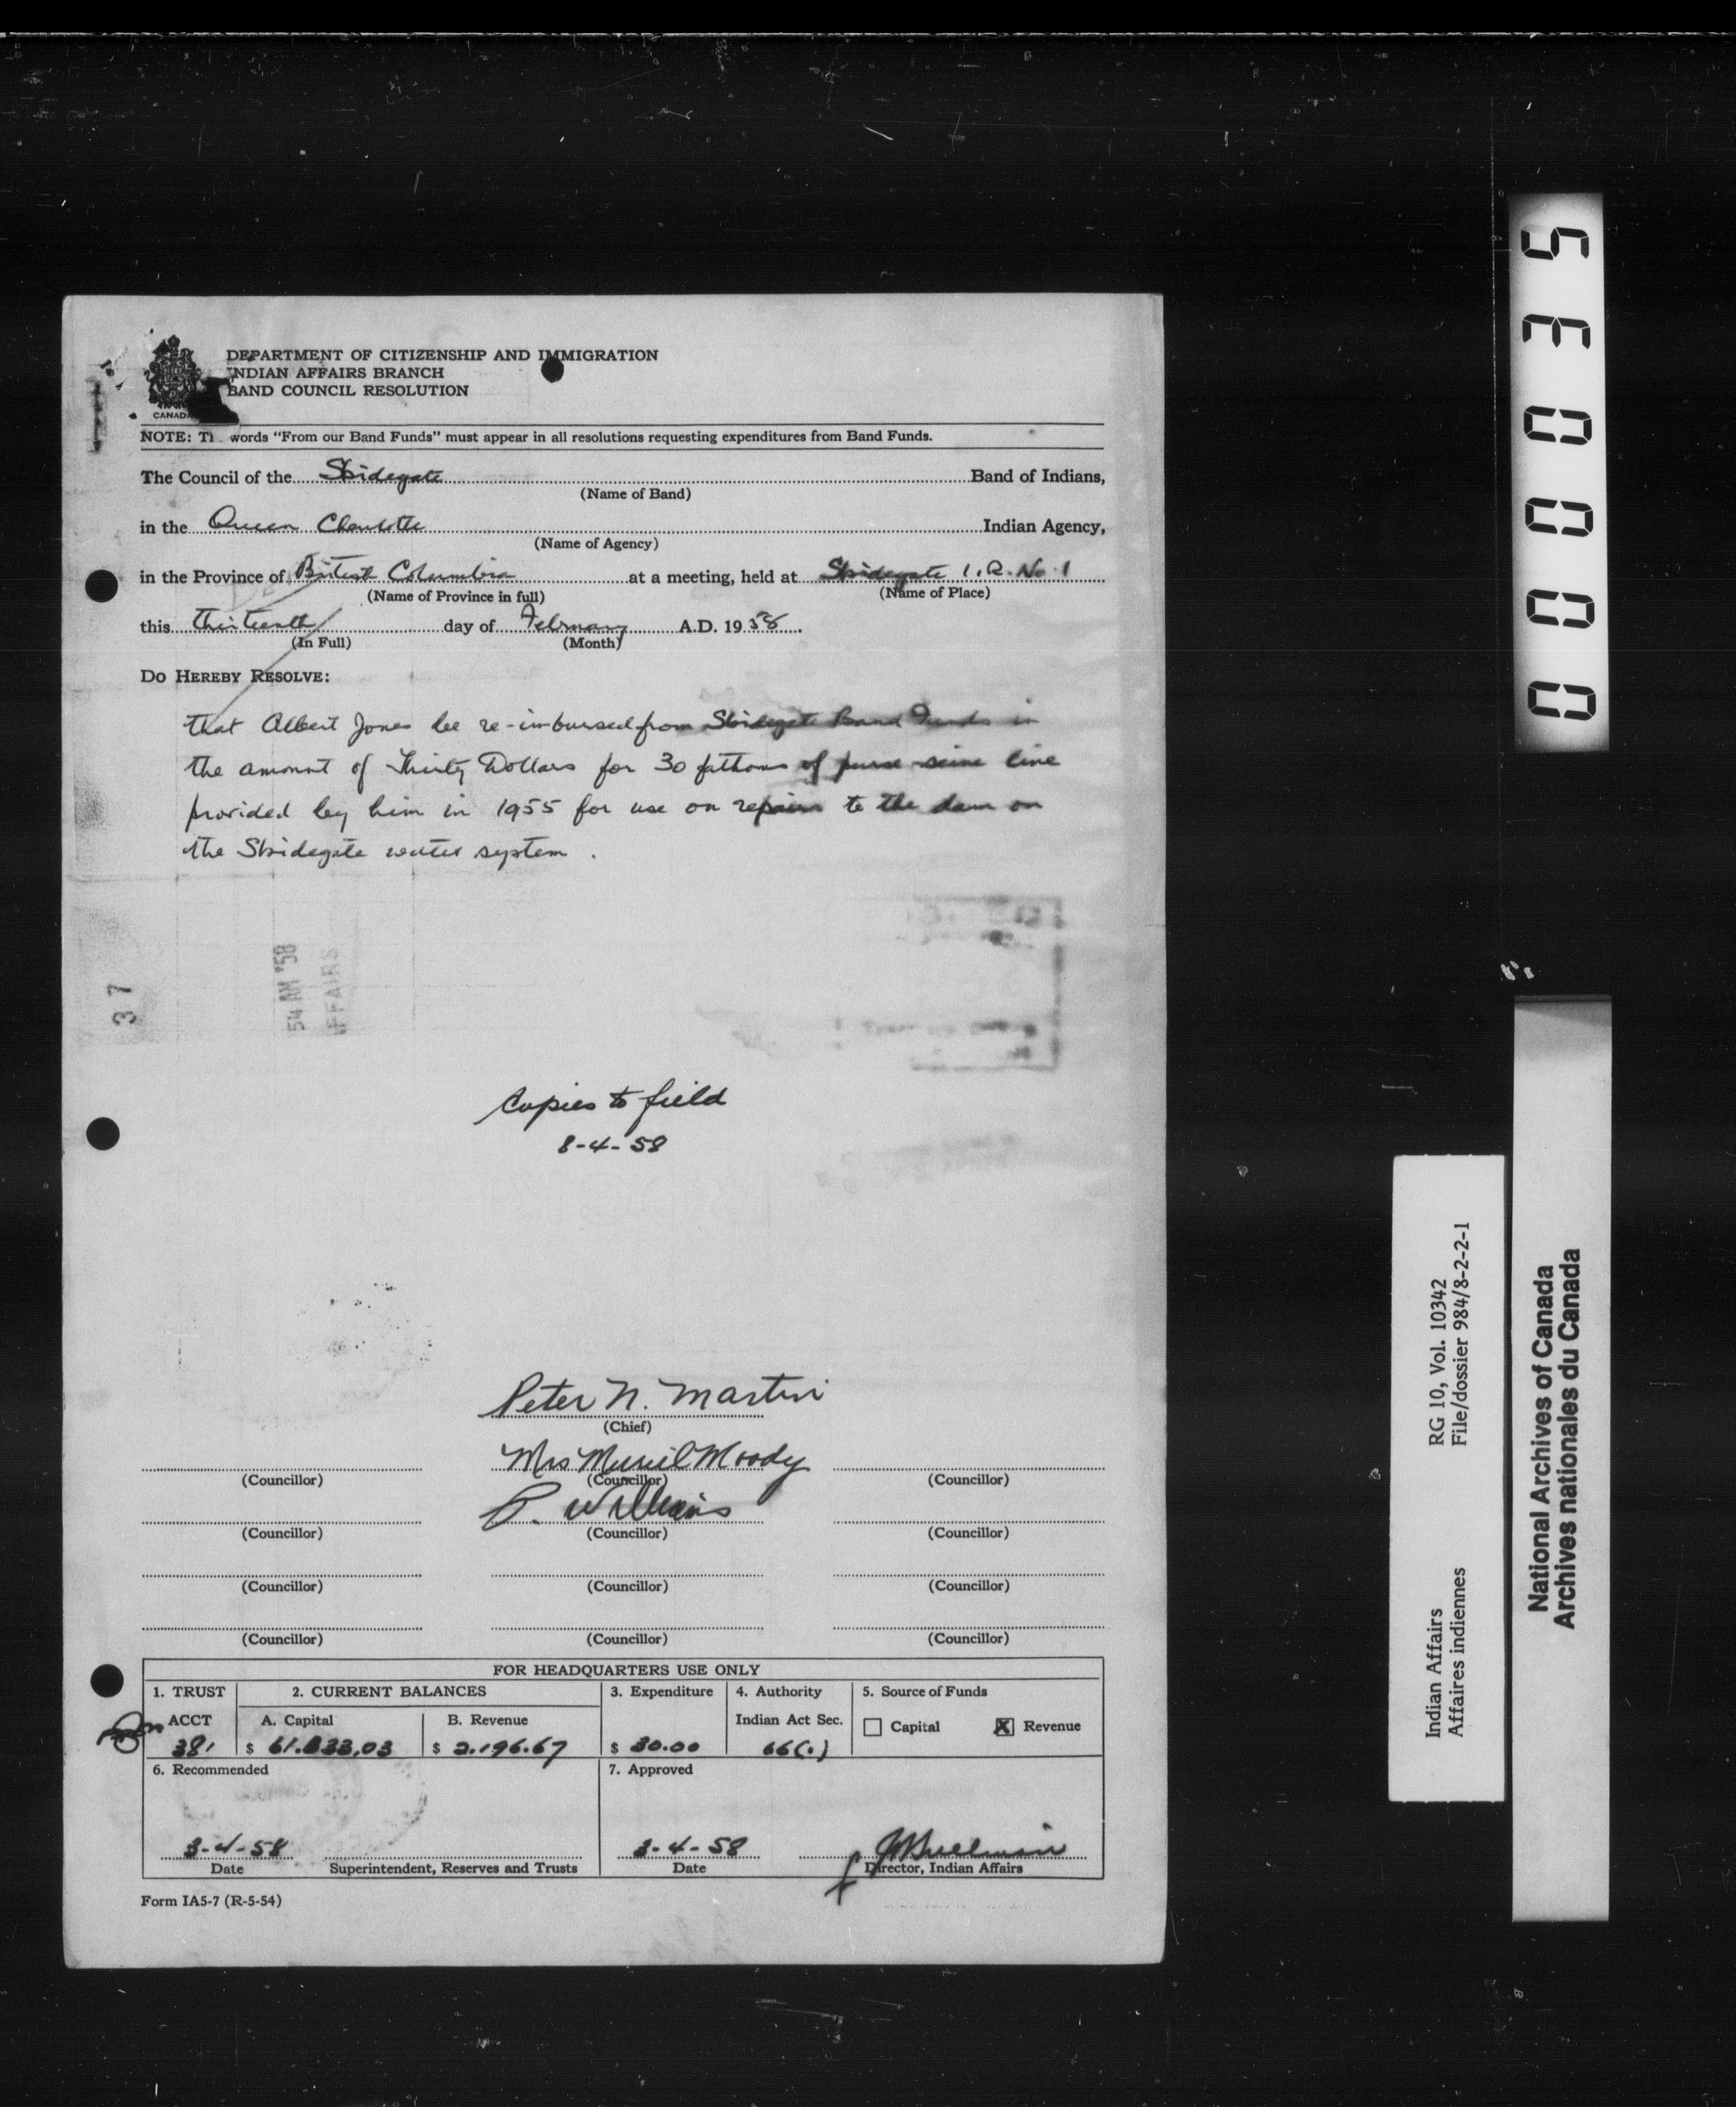 DEPARTMENT OF CITIZENSHIP AND IMMIGRATION
INDIAN AFFAIRS BRANCH
BAND COUNCIL RESOLUTION
CANADA
NOTE: Th words "From our Band Funds" must appear in all resolutions requesting expenditures from Band Funds.
The Council of the Skidegate Band of Indians,
(Name of Band)
in the Queen Charlotte Indian Agency,
(Name of Agency)
in the Province of British Columbia at a meeting, held at Skidegate I.R. No 1
(Name of Province in full) (Name of Place)
this thirteenth day of February A.D. 19 58.
(In Full) (Month)
DO HEREBY RESOLVE:
that Albert Jones be re-imbursed from Skidegate Band Funds in
the amount of Thirty Dollars for 30 fathoms of purse-seine line
provided by him in 1955 for use on repairs to the dam on
the Skidegate water system.
54 AM '58
FFAIRS
37
Copies to field
8-4-58
Peter N. Martin
(Chief)
Mrs Muriel Moody
(Councillor) (Councillor) (Councillor)
P. Williams
(Councillor) (Councillor) (Councillor)
(Councillor) (Councillor) (Councillor)
(Councillor) (Councillor) (Councillor)
FOR HEADQUARTERS USE ONLY
1. TRUST ACCT
381
2. CURRENT BALANCES
A. Capital
B. Revenue
$ 2.196.67
3. Expenditure
$ 30.00
4. Authority
Indian Act Sec.
5. Source of Funds
Capital X Revenue
6. Recommended
3-4-58
Date Superintendent, Reserves and Trusts
7. Approved
3-4-58
Date Director, Indian Affairs
Form IA5-7 (R-5-54)
00035
Indian Affairs RG 10, Vol. 10342
Affaires indiennes File/dossier 984/8-2-2-1
National Archives of Canada
Archives nationales du Canada